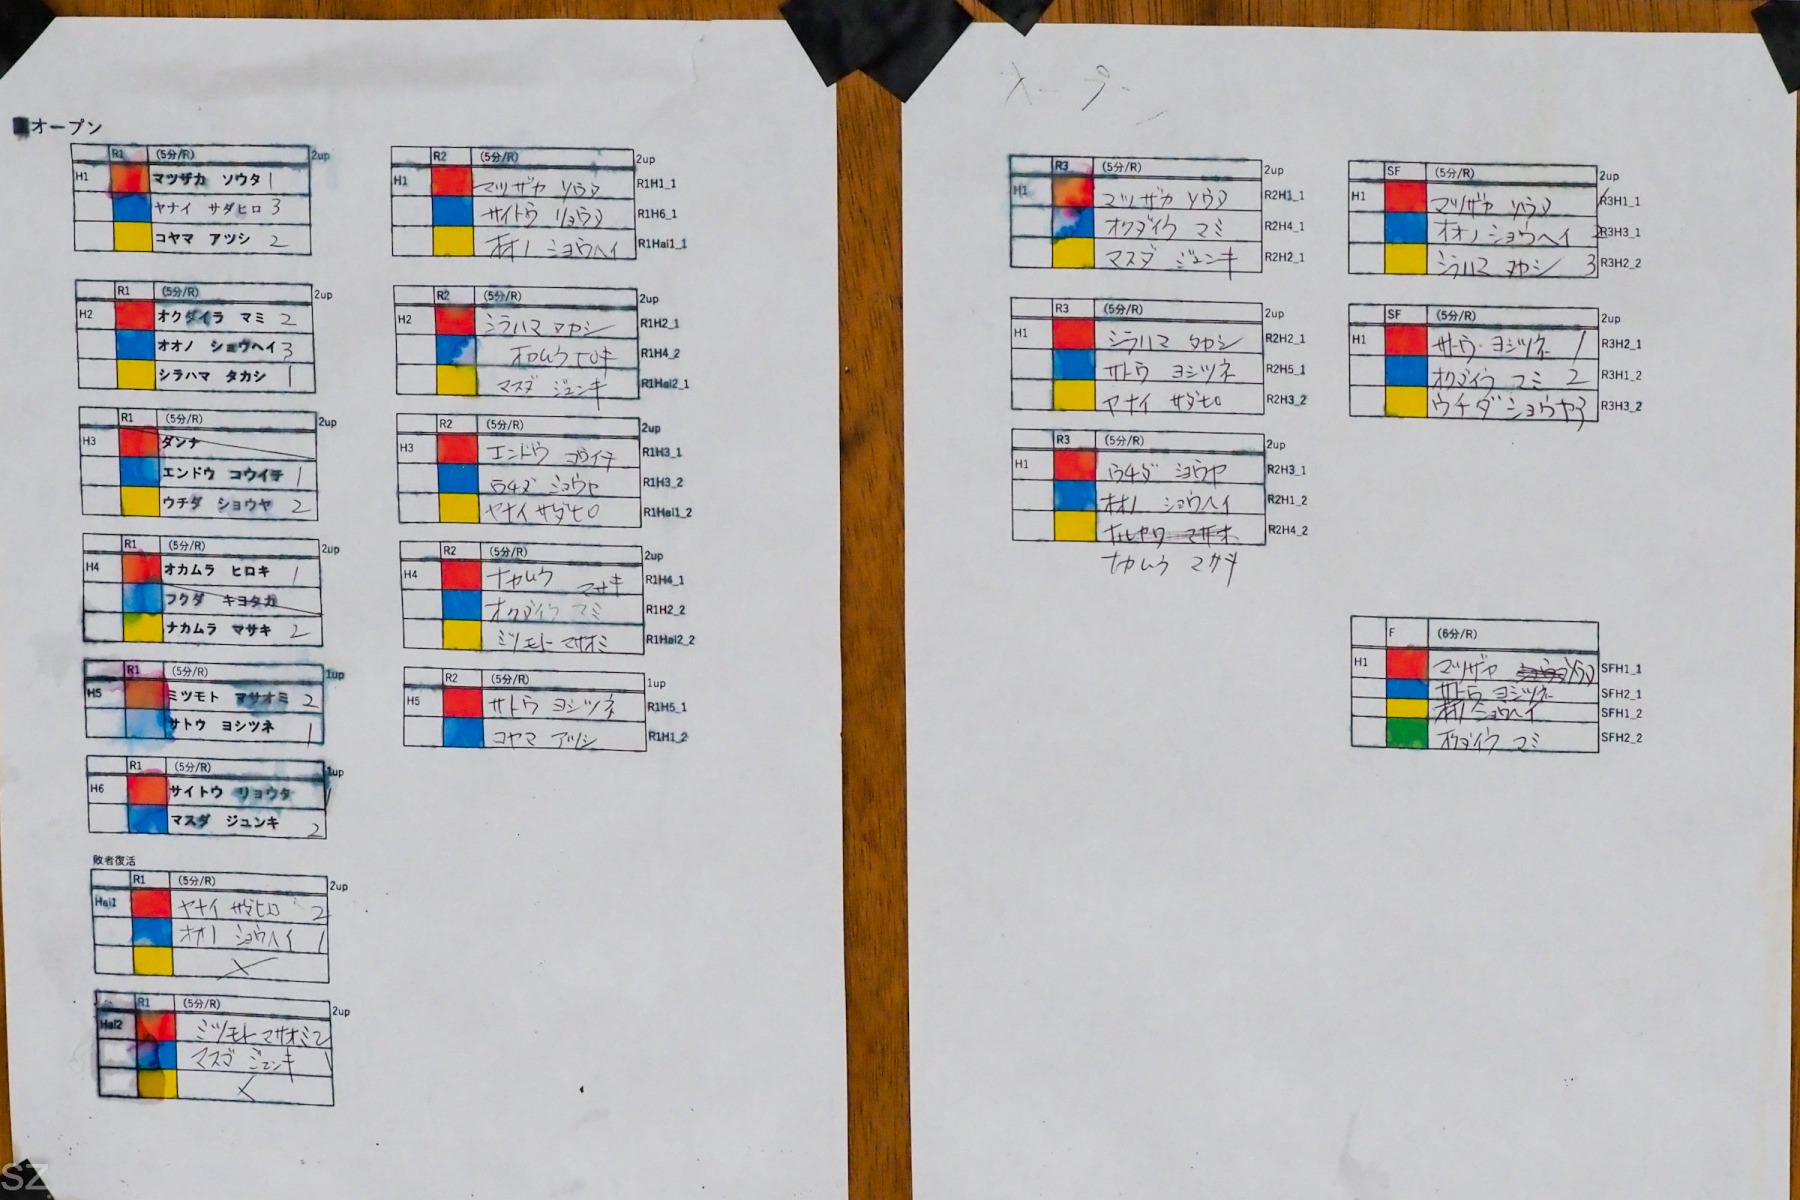 ■オープン
R1 (5分/R) 2up
H1 マツザカ ソウタ 1
ヤナイ サダヒロ 3
コヤマ アツシ 2
R1 (5分/R) 2up
H2 オクダイラ マミ 2
オオノ ショウヘイ 3
シラハマ タカシ 1
R1 (5分/R) 2up
H3 ダンナ
エンドウ コウイチ 1
ウチダ ショウヤ 2
R1 (5分/R) 2up
H4 オカムラ ヒロキ 1
フクダ キヨタカ
ナカムラ マサキ 2
R1 (5分/R) 1up
H5 ミツモト マサオミ 2
サトウ ヨシツネ 1
R1 (5分/R) 1up
H6 サイトウ リョウタ 1
マスダ ジュンキ 2
敗者復活
R1 (5分/R) 2up
Hai1 ヤナイ サダヒロ 2
オオノ ショウヘイ 1
×
R1 (5分/R) 2up
Hai2 ミツモト マサオミ 2
マスダ ジュンキ 1
×
R2 (5分/R) 2up
H1 マツザカ ソウタ R1H1_1
サイトウ リョウタ R1H6_1
オオノ ショウヘイ R1Hai1_1
R2 (5分/R) 2up
H2 シラハマ タカシ R1H2_1
オカムラ ヒロキ R1H4_2
マスダ ジュンキ R1Hai2_1
R2 (5分/R) 2up
H3 エンドウ コウイチ R1H3_1
ウチダ ショウヤ R1H3_2
ヤナイ サダヒロ R1Hai1_2
R2 (5分/R) 2up
H4 ナカムラ マサキ R1H4_1
オクダイラ マミ R1H2_2
ミツモト マサオミ R1Hai2_2
R2 (5分/R) 1up
H5 サトウ ヨシツネ R1H5_1
コヤマ アツシ R1H1_2
オープン
R3 (5分/R) 2up
H1 マツザカ ソウタ R2H1_1
オクダイラ マミ R2H4_1
マスダ ジュンキ R2H2_1
R3 (5分/R) 2up
H1 シラハマ タカシ R2H2_1
サトウ ヨシツネ R2H5_1
ヤナイ サダヒロ R2H3_2
R3 (5分/R) 2up
H1 ウチダ ショウヤ R2H3_1
オオノ ショウヘイ R2H1_2
R2H4_2
ナカムラ マサキ
SF (5分/R) 2up
H1 マツザカ ソウタ 1 R3H1_1
オオノ ショウヘイ 2 R3H3_1
シラハマ タカシ 3 R3H2_2
SF (5分/R) 2up
H1 サトウ ヨシツネ 1 R3H2_1
オクダイラ マミ 2 R3H1_2
ウチダ ショウヤ 3 R3H3_2
F (6分/R)
H1 マツザカ ソウタ SFH1_1
サトウ ヨシツネ SFH2_1
オオノ ショウヘイ SFH1_2
オクダイラ マミ SFH2_2
SZ